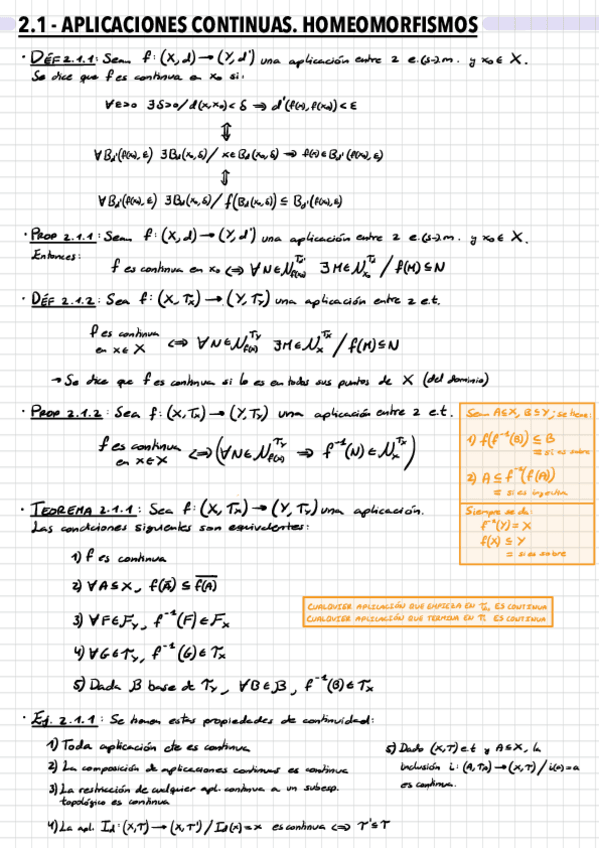 2.1 - APLICACIONES CONTINUAS. HOMEOMORFISMOS
· DÉF 2.1.1: Sean f: (X,d) → (Y,d') una aplicación entre 2 e.(s-)m. y x₀ ∈ X.
Se dice que f es continua en x₀ si:
∀ε>0 ∃δ>0 / d(x,x₀) < δ ⇒ d'(f(x), f(x₀)) < ε
⇕
∀B_d'(f(x₀), ε) ∃B_d(x₀, δ) / x ∈ B_d(x₀, δ) ⇒ f(x) ∈ B_d'(f(x₀), ε)
⇕
∀B_d'(f(x₀), ε) ∃B_d(x₀, δ) / f(B_d(x₀, δ)) ⊆ B_d'(f(x₀), ε)
· PROP 2.1.1: Sean f: (X,d) → (Y,d') una aplicación entre 2 e.(s-)m. y x₀ ∈ X.
Entonces:
f es continua en x₀ ⇔ ∀N ∈ N_f(x₀)^Td' ∃M ∈ N_x₀^Td / f(M) ⊆ N
· DÉF 2.1.2: Sea f: (X, Tx) → (Y, Ty) una aplicación entre 2 e.t.
f es continua en x ∈ X ⇔ ∀N ∈ N_f(x)^Ty ∃M ∈ N_x^Tx / f(M) ⊆ N
→ Se dice que f es continua si lo es en todos sus puntos de X (del dominio)
· PROP 2.1.2: Sea f: (X, Tx) → (Y, Ty) una aplicación entre 2 e.t.
f es continua en x ∈ X ⇔ (∀N ∈ N_f(x)^Ty ⇒ f⁻¹(N) ∈ N_x^Tx)
Sean A⊆X, B⊆Y; se tiene:
1) f(f⁻¹(B)) ⊆ B
= si es sobre
2) A ⊆ f⁻¹(f(A))
= si es inyectiva
Siempre se da:
f⁻¹(Y) = X
f(X) ⊆ Y
= si es sobre
· TEOREMA 2.1.1: Sea f: (X, Tx) → (Y, Ty) una aplicación.
Las condiciones siguientes son equivalentes:
1) f es continua
2) ∀A ⊆ X, f(A̅) ⊆ f(A)̅
3) ∀F ∈ Fy, f⁻¹(F) ∈ Fx
4) ∀G ∈ Ty, f⁻¹(G) ∈ Tx
5) Dada B base de Ty, ∀B ∈ B, f⁻¹(B) ∈ Tx
CUALQUIER APLICACIÓN QUE EMPIEZA EN ES CONTINUA
CUALQUIER APLICACIÓN QUE TERMINA EN ES CONTINUA
· Ej. 2.1.1: Se tienen estas propiedades de continuidad:
1) Toda aplicación cte es continua
2) La composición de aplicaciones continuas es continua
3) La restricción de cualquier apl. continua a un subesp. topológico es continua
4) La apl. Id: (X,T) → (X,T') / Id(x) = x es continua ⇔ T' ⊆ T
5) Dado (X,T) e.t y A⊆X, la
inclusión i: (A, TA) → (X,T) / i(a) = a
es continua.